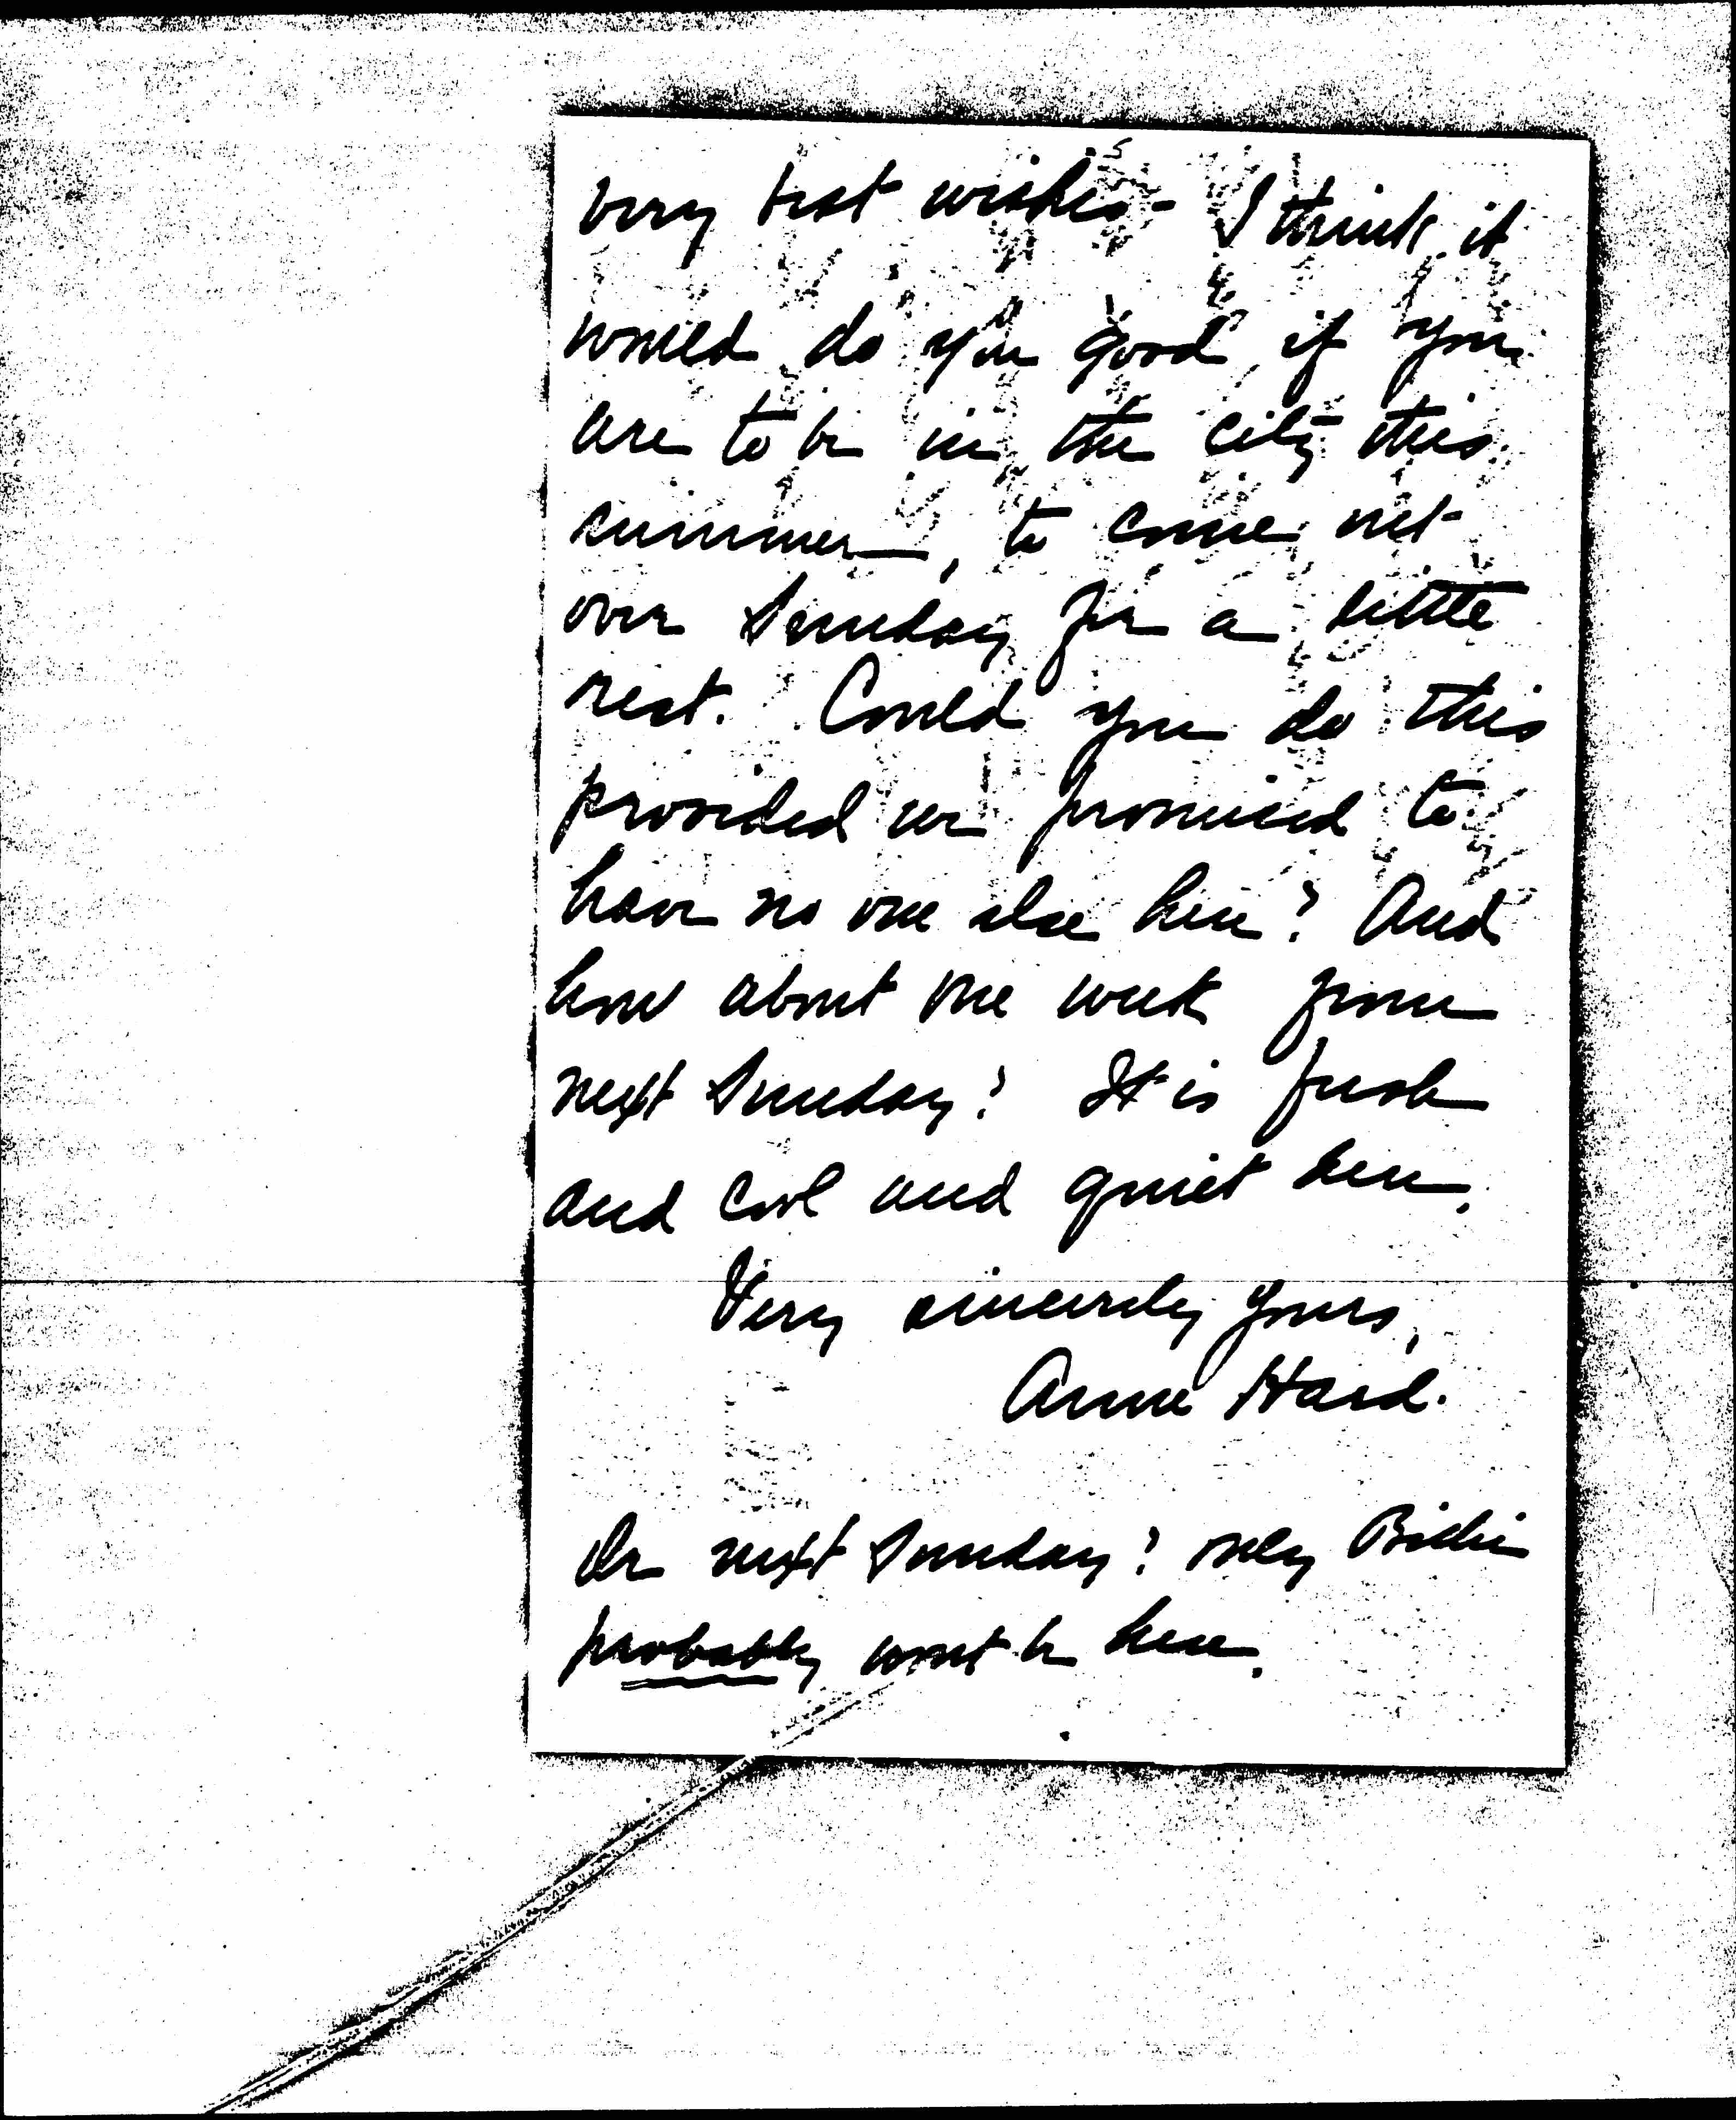 very best wishes - I think it
would do you good, if you
are to be in the city this
summer, to come out
over Sunday for a little
rest. Could you do this
provided we promised to
have no one else here? And
how about one week from
next Sunday? It is fresh
and cool and quiet here.
Very sincerely yours,
Anne Hard.
Or next Sunday? only Billie
probably wont be here.